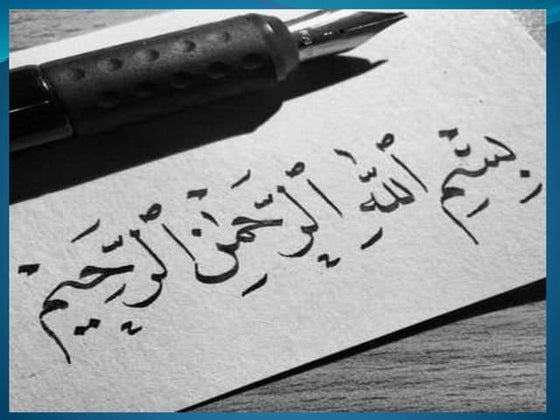 بِسْمِ اللَّهِ الرَّحْمٰنِ الرَّحِيْمِ